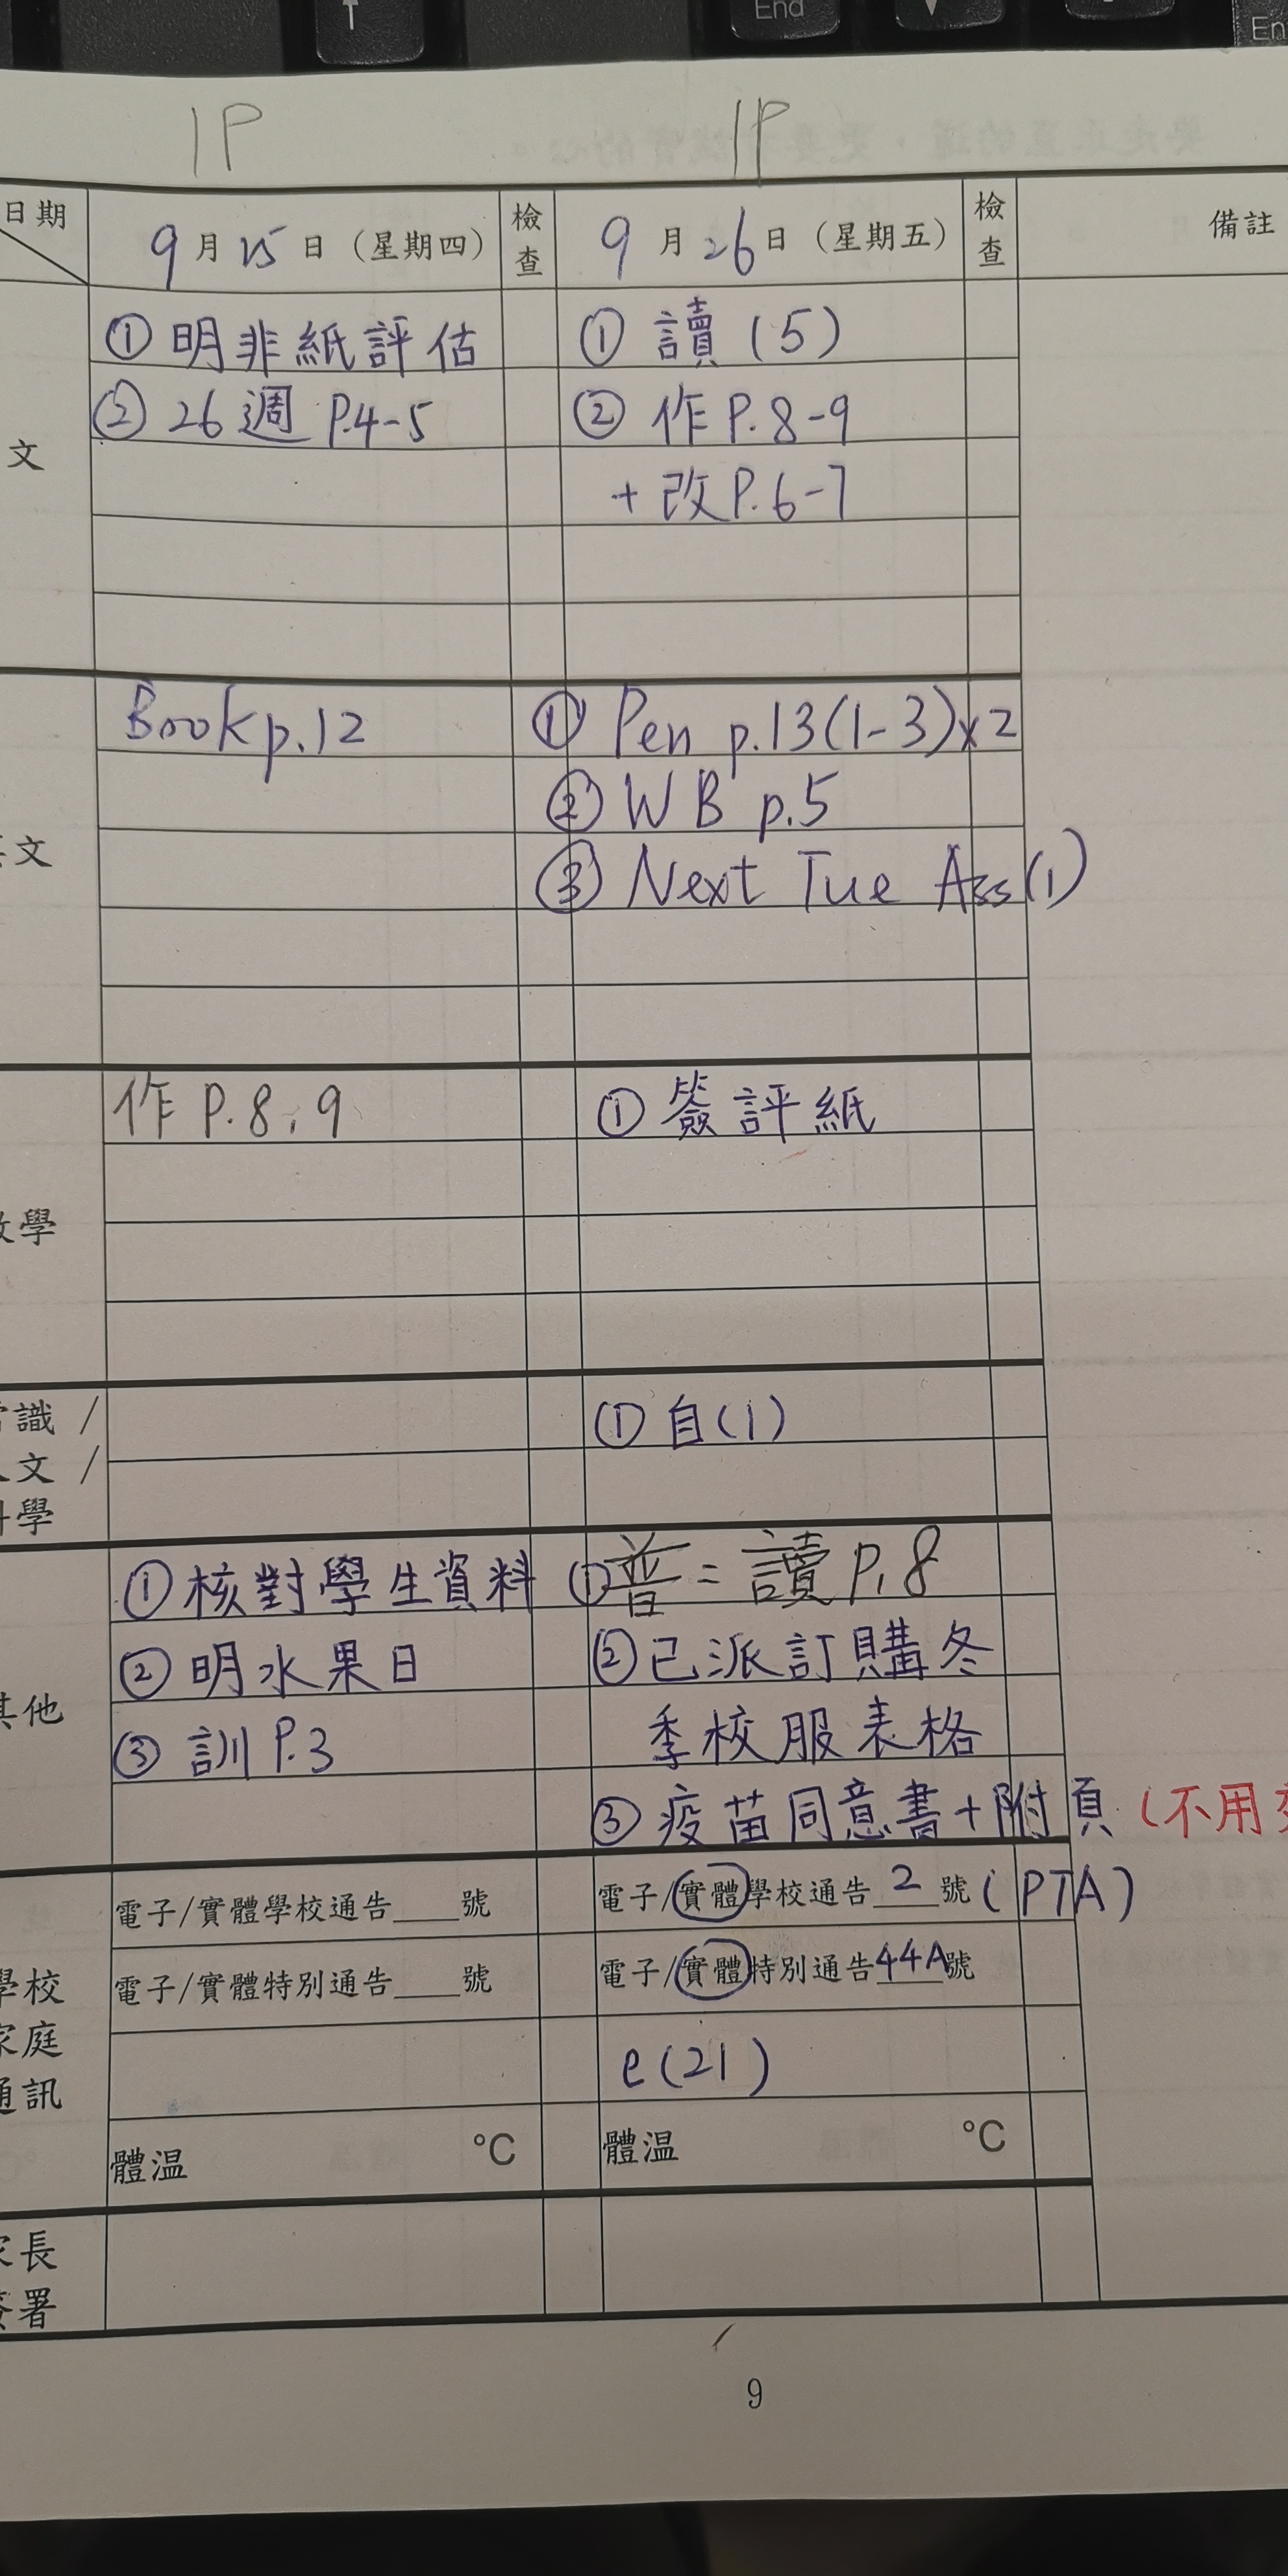 End
En
1P
1P
日期
9月25日（星期四）
檢查
9月26日（星期五）
檢查
備註
文
① 明非紙評估
② 26週 P.4-5
① 讀(5)
② 作P.8-9
+ 改P.6-7
文
Book p.12
① Pen p.13(1-3)x2
② WB p.5
③ Next Tue Ass(1)
數學
作P.8,9
① 簽評紙
常識/
人文/
科學
① 自(1)
其他
① 核對學生資料
② 明水果日
③ 訓P.3
① 普=讀P.8
② 已派訂購冬
季校服表格
③ 疫苗同意書+附頁(不用
學校
家庭
通訊
電子/實體學校通告___號
電子/實體特別通告___號
體温 °C
電子/實體學校通告 2 號 (PTA)
電子/實體特別通告44A號
e(21)
體温 °C
家長
簽署
9